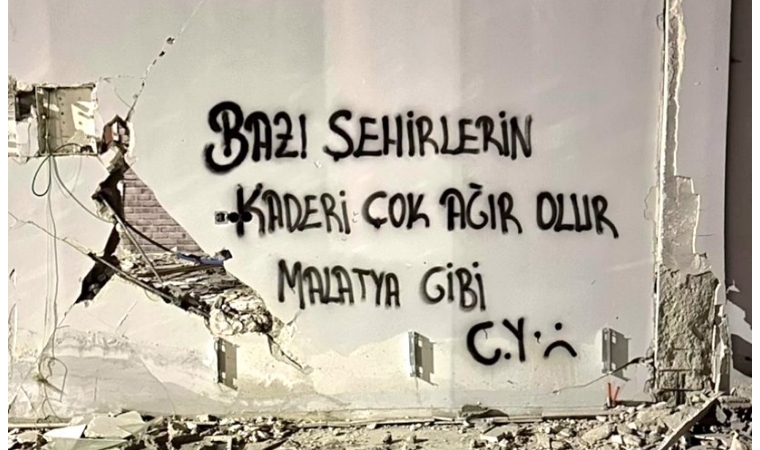 BAZI ŞEHİRLERİN
KADERİ ÇOK AĞIR OLUR
MALATYA GİBİ
C.Y :(